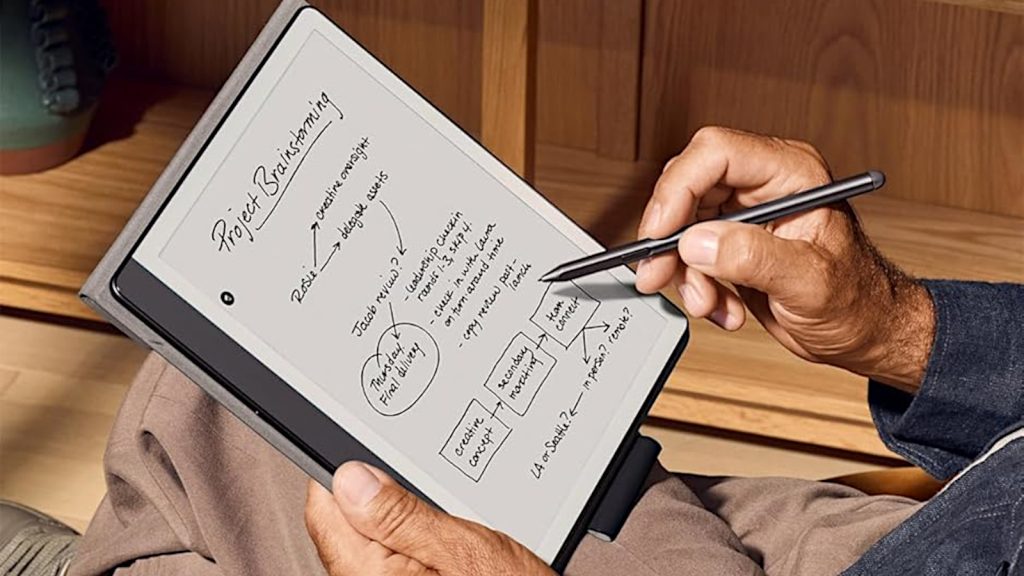 Project Brainstorming
Rosie
creative oversight
delegate assets
Jacob review?
- leadership checkin
remaf: 1.3, skip 4.
- check in with Laura
on turn around time
- copy review post-
launch
Thursday
Final delivery
creative
concept
secondary
meeting
team
connect
in person? remote?
LA or Seattle?